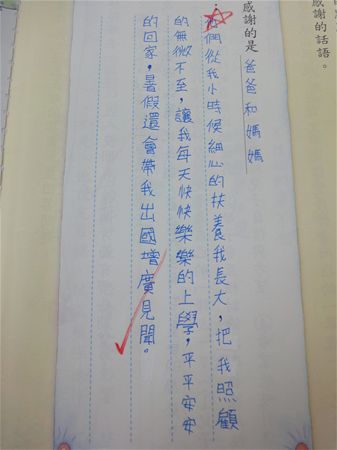 感謝的話語。
感謝的是爸爸和媽媽
他們從我小時候細心的扶養我長大，把我照顧
的無微不至，讓我每天快快樂樂的上學，平平安安
的回家，暑假還會帶我出國增廣見聞。